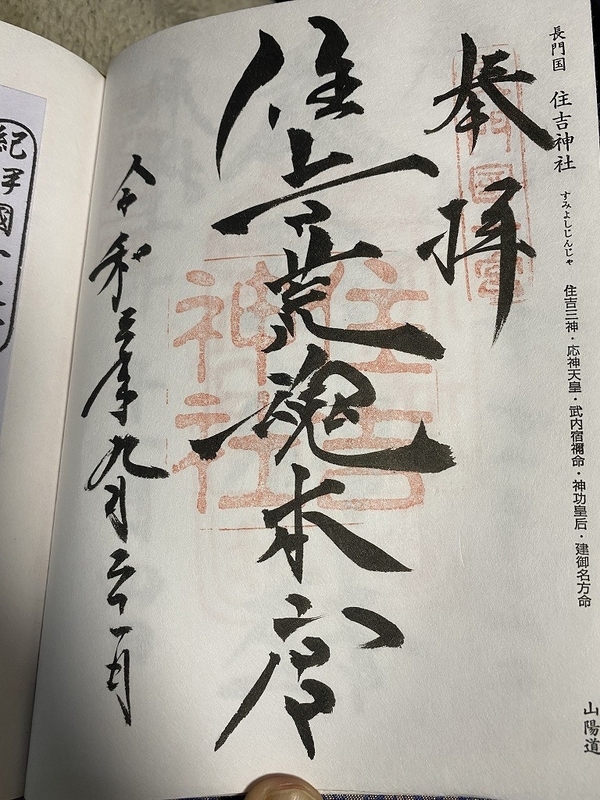 長門国 住吉神社 すみよしじんじゃ 住吉三神・応神天皇・武内宿禰命・神功皇后・建御名方命
山陽道
奉拝
住吉荒魂本宮
住吉
神社
令和三年九月二十一日
紀伊國一